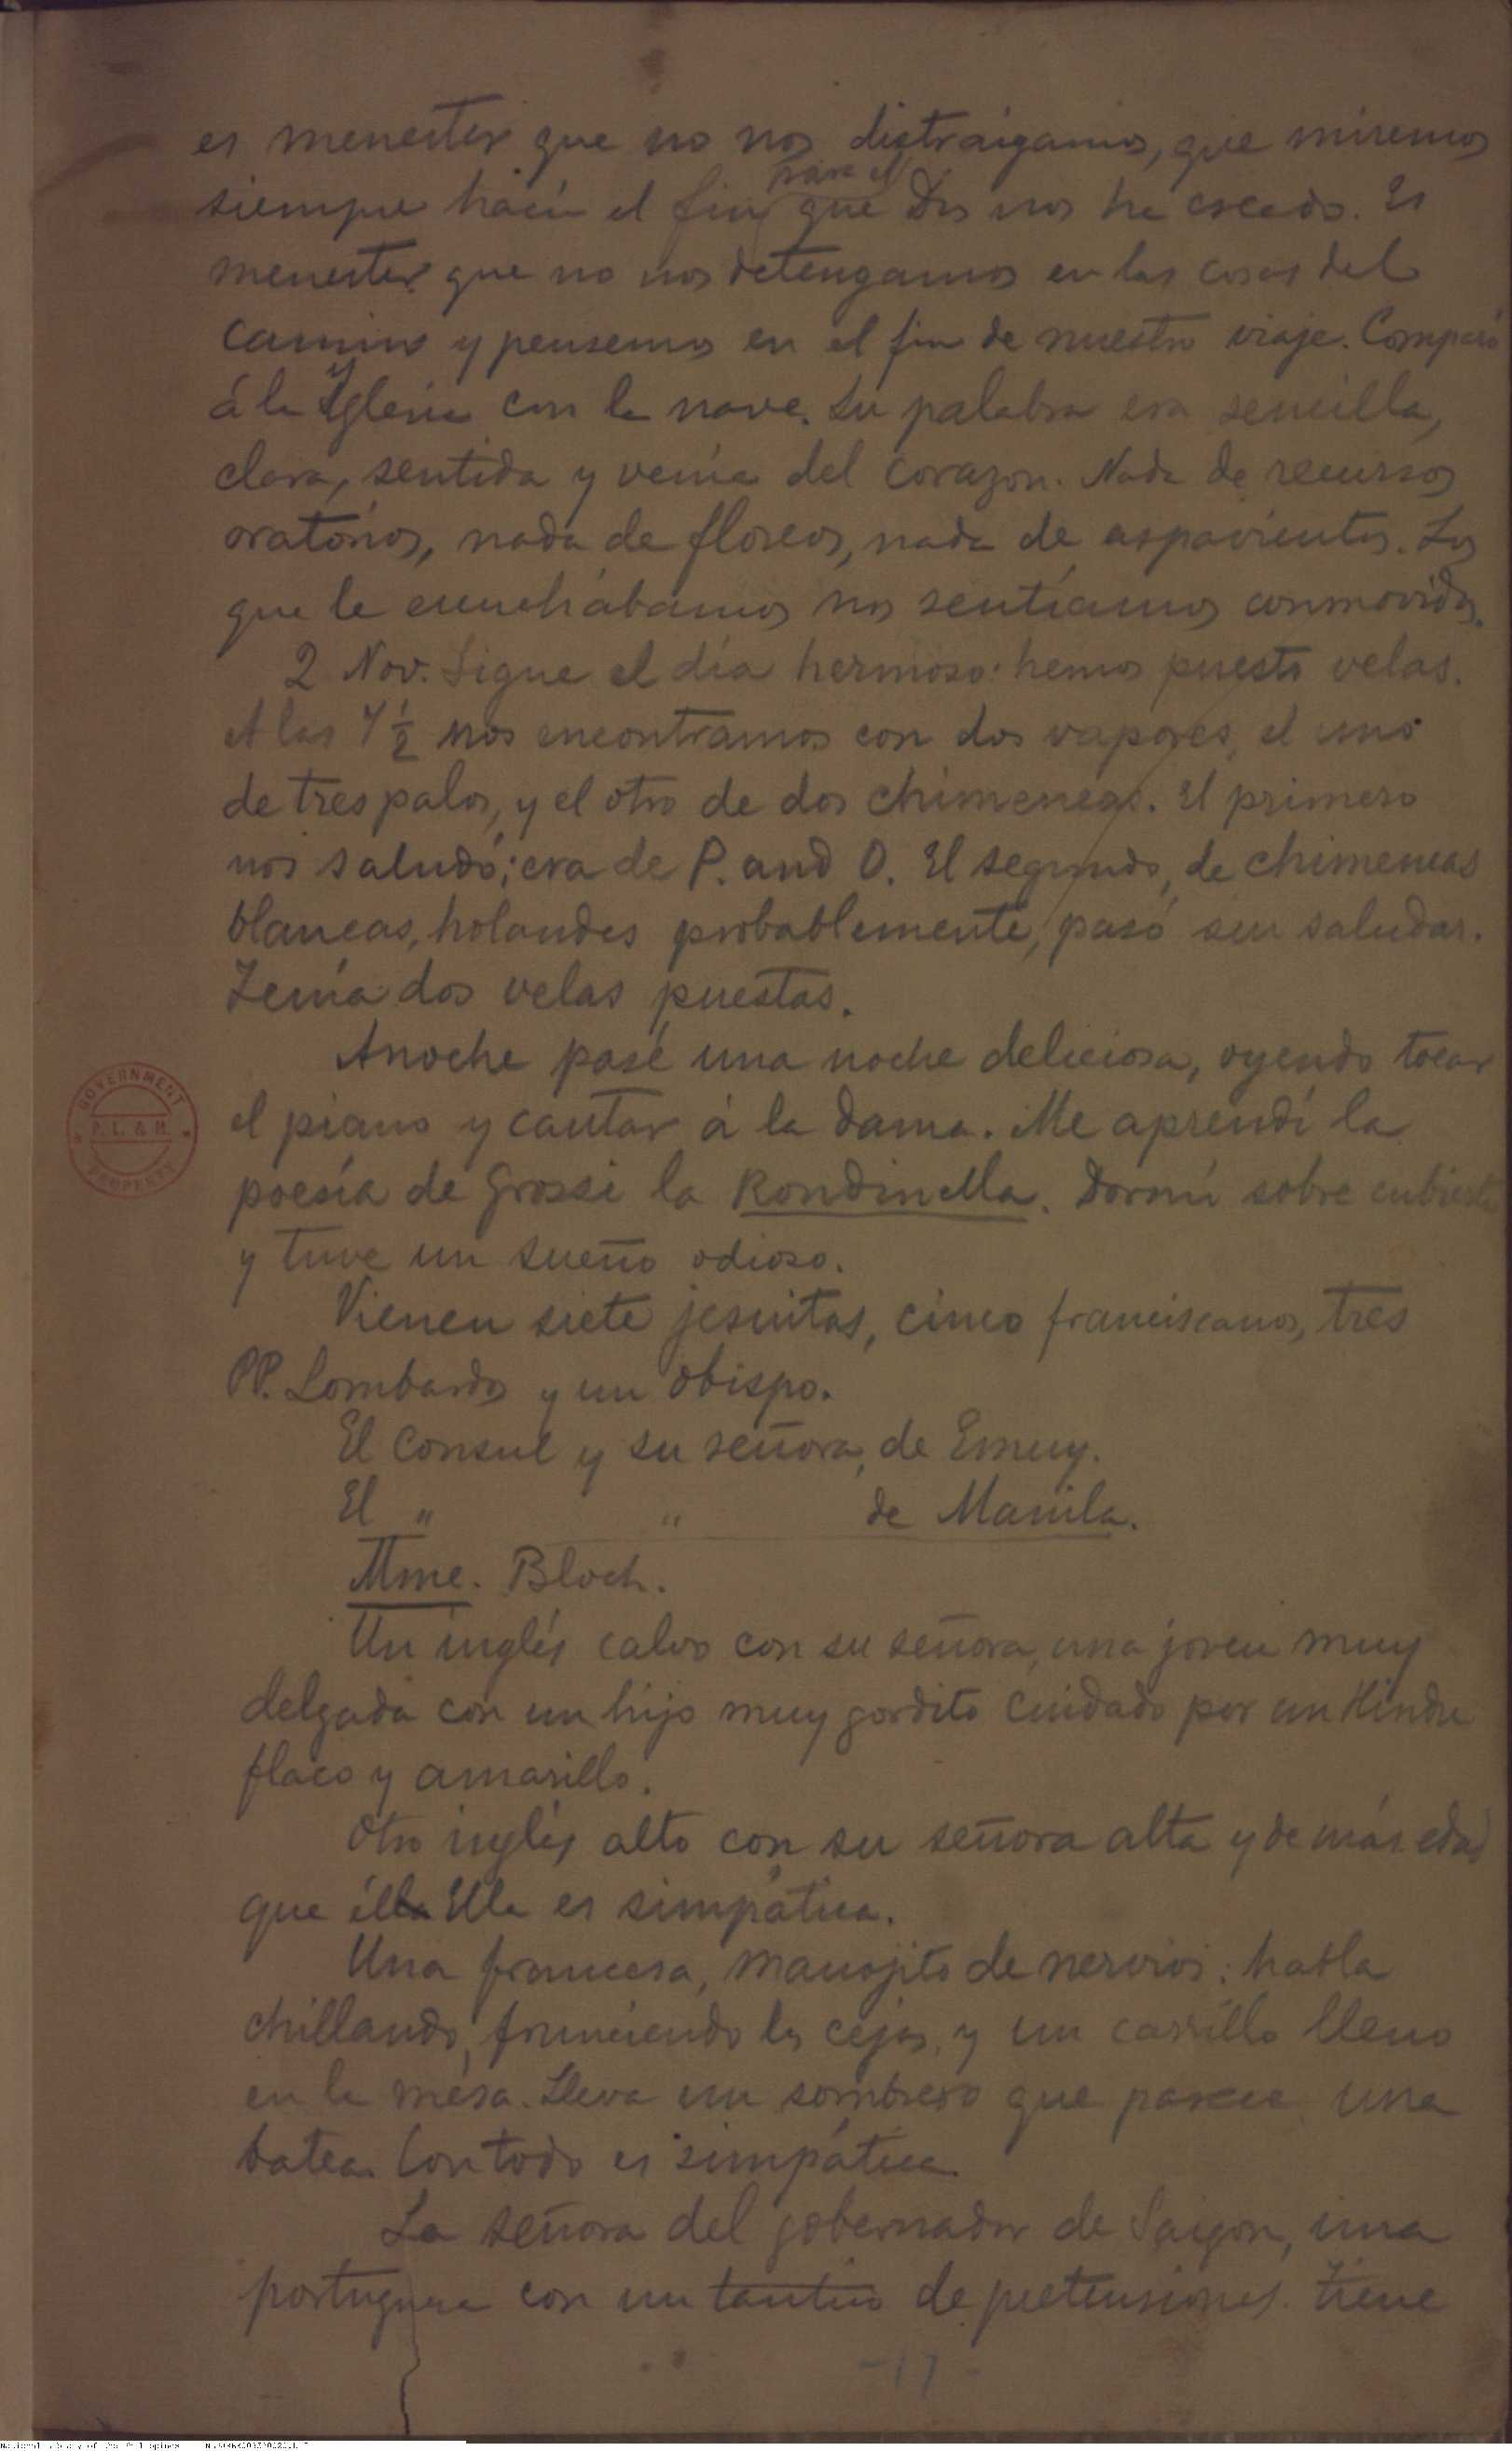 es menester que no nos distraigamos, que miremos
para el
siempre hácia el fin que Dios nos ha creado. Es
menester que no nos detengamos en las cosas del
camino y pensemos en el fin de nuestro viaje. Comparó
á la Yglesia con la nave. Su palabra era sencilla,
clara, sentida y venía del corazon. Nada de recursos
oratorios, nada de floreos, nada de aspavientos. Los
que le escuchábamos nos sentíamos conmovidos.
2 Nov. Sigue el día hermoso: hemos puesto velas.
A las 7 1/2 nos encontramos con dos vapores, el uno
de tres palos, y el otro de dos chimeneas. El primero
nos saludó; era de P. and O. El segundo, de chimeneas
blancas, holandes probablemente, pasó sin saludar.
Tenía dos velas puestas.
Anoche pasé una noche deliciosa, oyendo tocar
el piano y cantar á la dama. Me aprendí la
poesía de Grossi la Rondinella. Dormí sobre cubierta
y tuve un sueño odioso.
Vienen siete jesuitas, cinco franciscanos, tres
PP. Lombardos y un obispo.
El Consul y su señora, de Emuy.
El " " de Manila.
Mme. Bloch.
Un inglés calvo con su señora, una joven muy
delgada con un hijo muy gordito cuidado por un Hindu
flaco y amarillo.
Otro inglés alto con su señora alta y de más edad
que él Ella es simpática.
Una francesa, manojito de nervios; habla
chillando, frunciendo las cejas, y un carrillo lleno
en la mesa. Lleva un sombrero que parece una
batea. Con todo es simpática.
La señora del gobernador de Saigon, una
portuguesa con un tantino de pretensiones. Tiene
-17-
GOVERNMENT
P. L. & M.
COMPANY